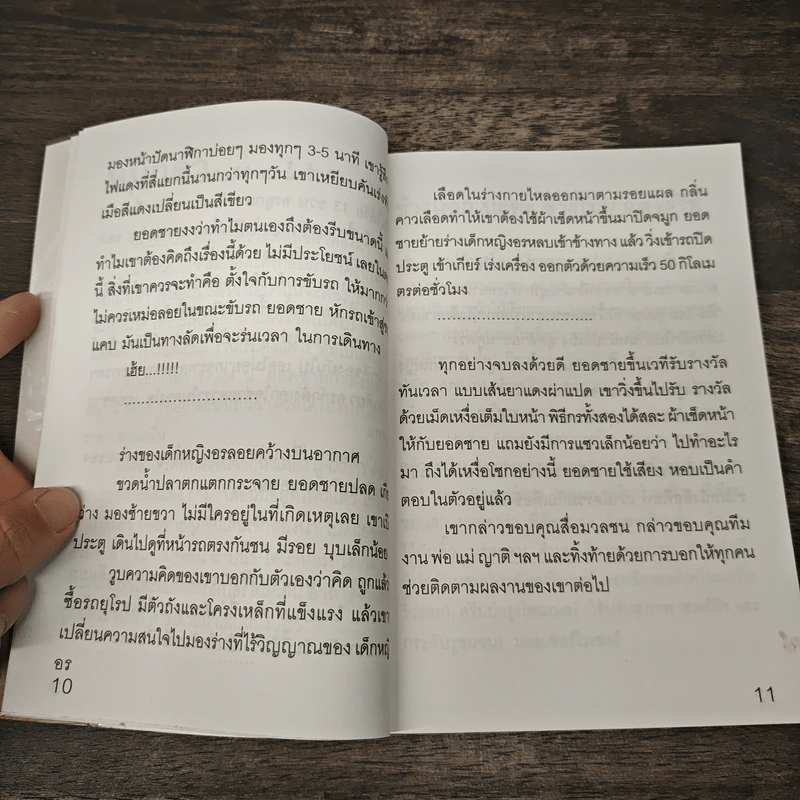 มองหน้าปัดนาฬิกาบ่อยๆ มองทุกๆ 3-5 นาที เขารู้
ไฟแดงที่สี่แยกนี้นานกว่าทุกๆวัน เขาเหยียบคันเร่ง
เมื่อสีแดงเปลี่ยนเป็นสีเขียว
ยอดชายงงว่าทำไมตนเองถึงต้องรีบขนาดนี้
ทำไมเขาต้องคิดถึงเรื่องนี้ด้วย ไม่มีประโยชน์ เลย
นี้ สิ่งที่เขาควรจะทำคือ ตั้งใจกับการขับรถ ให้มาก
ไม่ควรเหม่อลอยในขณะขับรถ ยอดชาย หักรถเข้า
แคบ มันเป็นทางลัดเพื่อจะร่นเวลา ในการเดินทาง
เฮ้ย...!!!!!
..............................
ร่างของเด็กหญิงอรลอยคว้างบนอากาศ
ขวดน้ำปลาตกแตกกระจาย ยอดชายปลด
มองซ้ายขวา ไม่มีใครอยู่ในที่เกิดเหตุเลย
ประตู เดินไปดูที่หน้ารถตรงกันชน มีรอย บุบเล็กน้อย
วูบความคิดของเขาบอกกับตัวเองว่าคิด ถูกแล้ว
ซื้อรถยุโรป มีตัวถังและโครงเหล็กที่แข็งแรง แล้วเขา
เปลี่ยนความสนใจไปมองร่างที่ไร้วิญญาณของ เด็กหญิ
อร
10
เลือดในร่างกายไหลออกมาตามรอยแผล กลิ่น
คาวเลือดทำให้เขาต้องใช้ผ้าเช็ดหน้าขึ้นมาปิดจมูก ยอด
ชายย้ายร่างเด็กหญิงอรหลบเข้าข้างทาง แล้ว วิ่งเข้ารถปิด
ประตู เข้าเกียร์ เร่งเครื่อง ออกตัวด้วยความเร็ว 50 กิโลเม
ตรต่อชั่วโมง
....................................
ทุกอย่างจบลงด้วยดี ยอดชายขึ้นเวทีรับรางวัล
ทันเวลา แบบเส้นยาแดงผ่าแปด เขาวิ่งขึ้นไปรับ รางวัล
ด้วยเม็ดเหงื่อเต็มใบหน้า พิธีกรทั้งสองได้สละ ผ้าเช็ดหน้า
ให้กับยอดชาย แถมยังมีการแซวเล็กน้อยว่า ไปทำอะไร
มา ถึงได้เหงื่อโชกอย่างนี้ ยอดชายใช้เสียง หอบเป็นคำ
ตอบในตัวอยู่แล้ว
เขากล่าวขอบคุณสื่อมวลชน กล่าวขอบคุณทีม
งาน พ่อ แม่ ญาติ ฯลฯ และทิ้งท้ายด้วยการบอกให้ทุกคน
ช่วยติดตามผลงานของเขาต่อไป
11